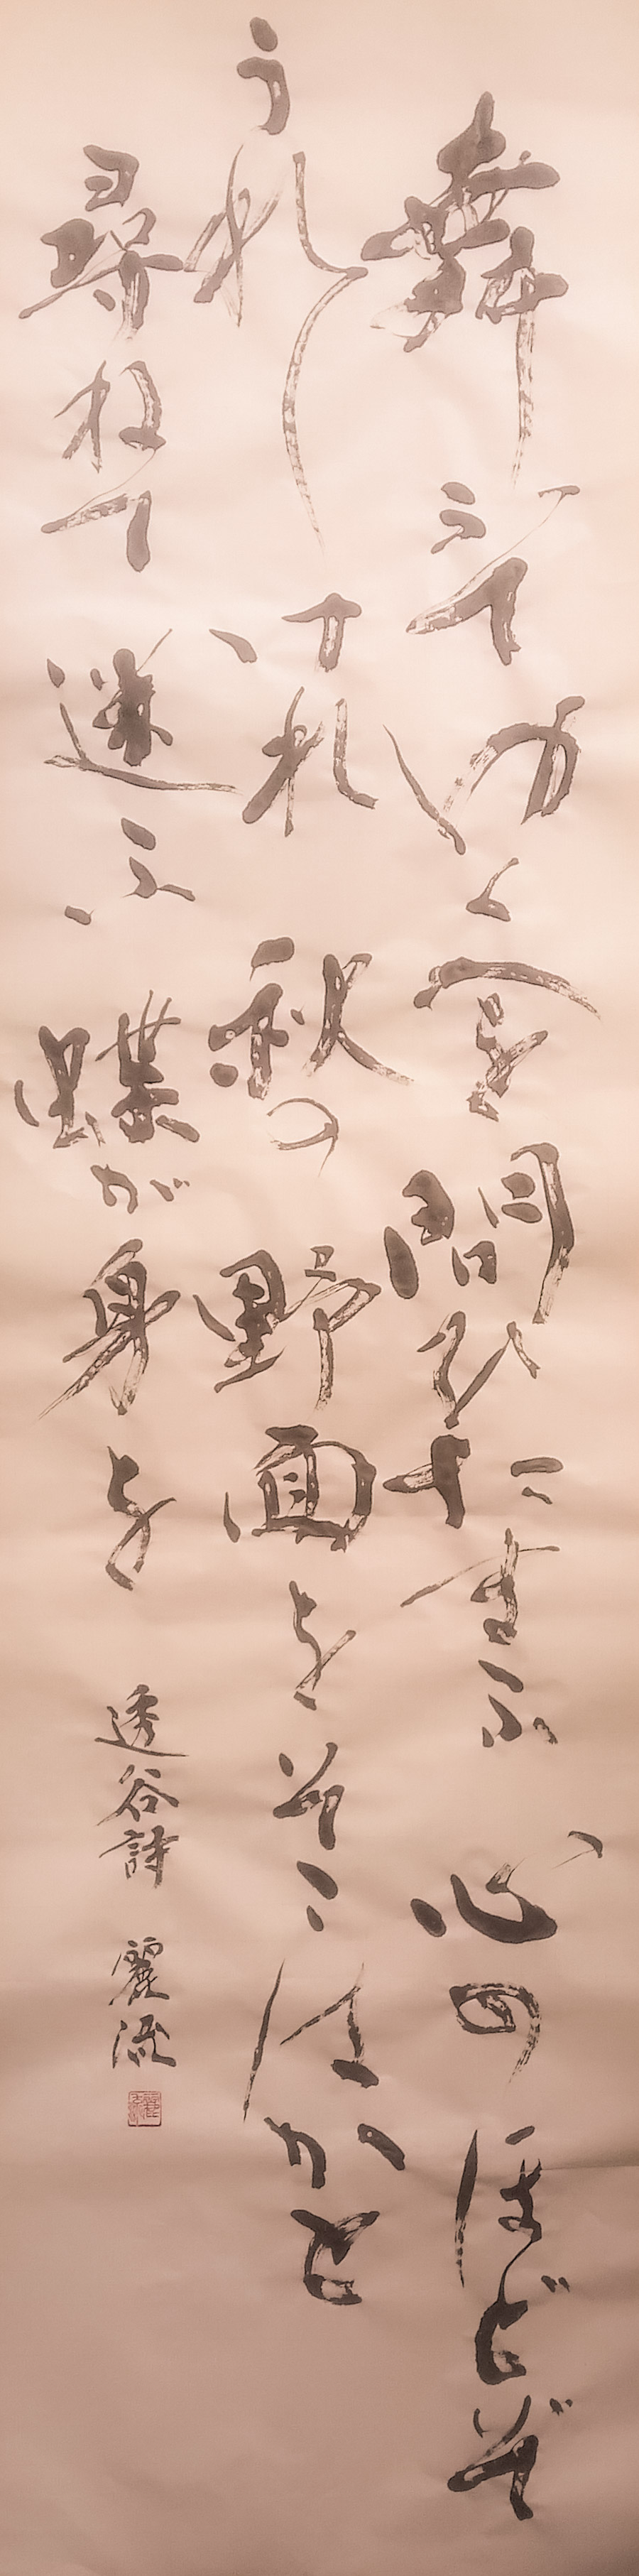 舞ふてゆくへを問ひたまふ心のほどぞ
うれしけれ秋の野面をそこはかと
尋ねて迷ふ蝶が身を
透谷詩 麗流